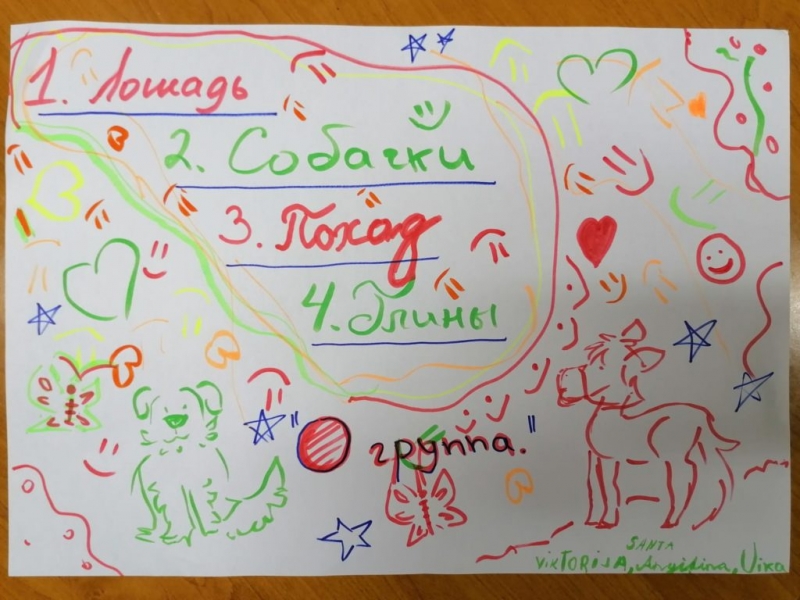 1. Лошадь
2. Собачки
3. Поход
4. Глины
"группа."
SANTA
VIKTORIJA, Angelina, Vika